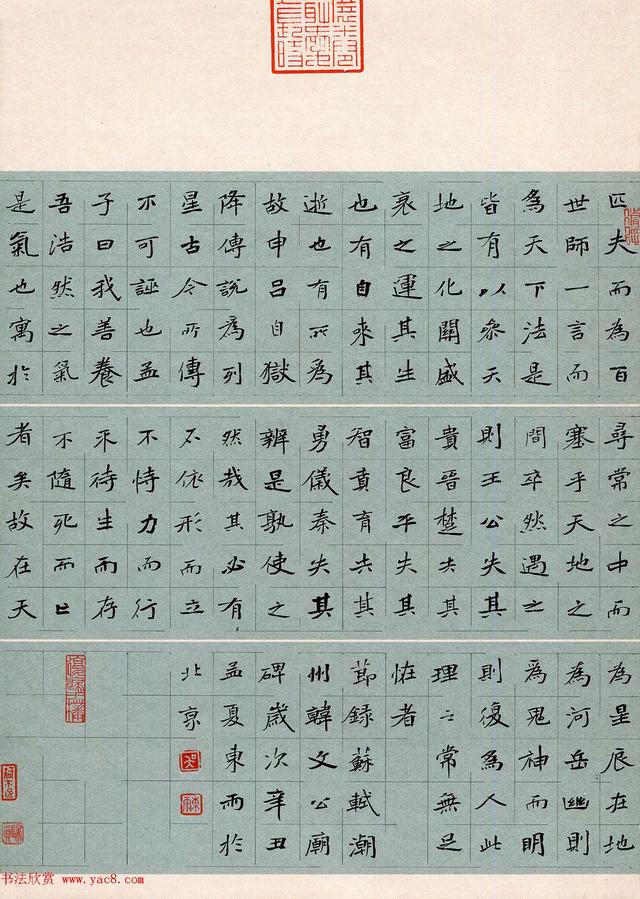 匹夫而為百
世師一言而
為天下法是
皆有以參天
地之化關盛
衰之運其生
也有自來其
逝也有所為
故申呂自獄
降傳說為列
星古今所傳
不可誣也孟
子曰我善養
吾浩然之氣
是氣也寓於
尋常之中而
塞乎天地之
間卒然遇之
則王公失其
貴晉楚失其
富良平失其
智賁育失其
勇儀秦失其
辨是孰使之
然哉其必有
不依形而立
不恃力而行
不待生而存
不隨死而亡
者矣故在天
為星辰在地
為河岳幽則
為鬼神而明
則復為人此
理之常無足
怪者
節錄蘇軾潮
州韓文公廟
碑歲次辛丑
孟夏東雨於
北京
书法欣赏 www.yac8.com